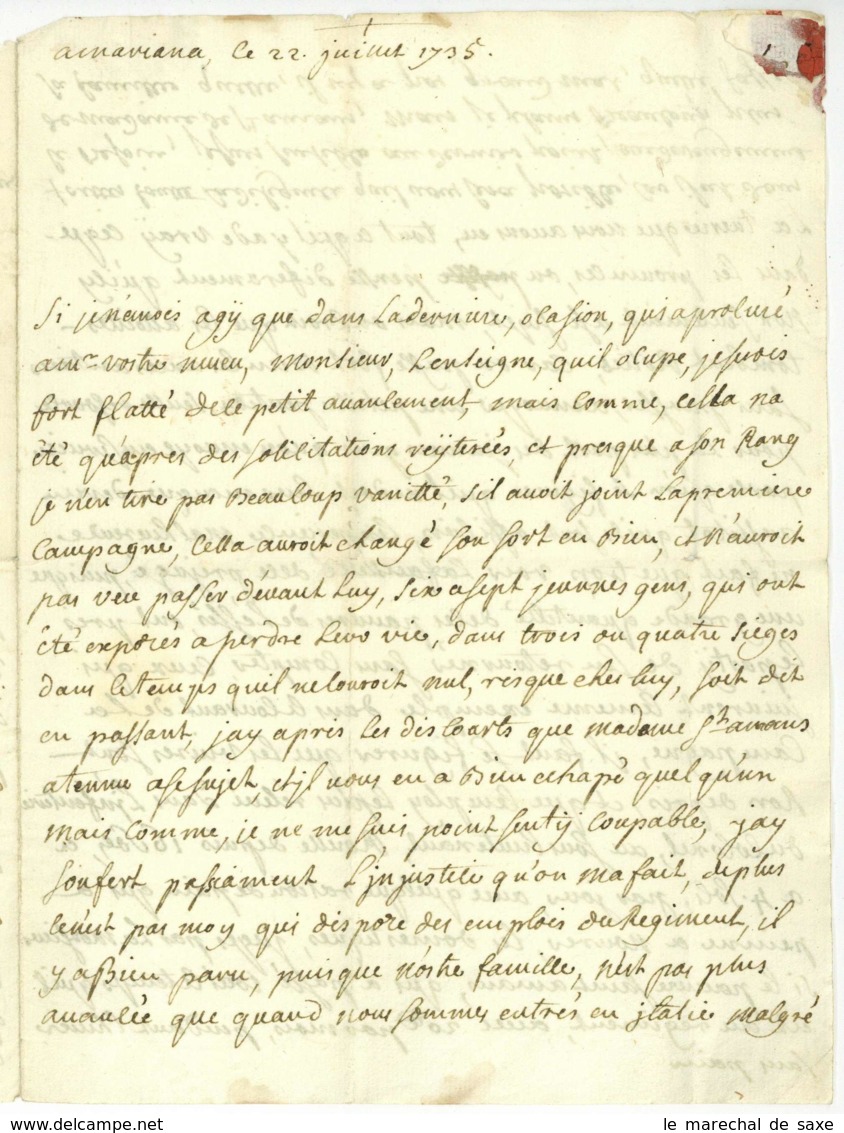 amariana, le 22. juillet 1735.
Si je n'auois agÿ que dans La derniere, ocasion, qui a procuré
a mr vostre nueu, Monsieur, L'enseigne, quil ocupe, je serois
fort flatté de ce petit auancement, mais comme, cella na
été qu'apres des solilitations reÿterées, et presque a son Rang
je n'en tire pas Beaucoup vanitté, Sil auoit joint La premiere
Campagne, Cella auroit changé son sort en Bien, et N'auroit
pas veu passer d'euant Luy, six a sept jeunnes gens, qui ont
été exposés a perdre Leur vie, dans trois ou quatre sieges
dans le temps quil ne couroit nul, risque ches luy, soit dit
en passant, jay apris Les discourts que madame St amans
a tenue a ce sujet, et jl vous en a Bien echapé quelqu'un
Mais Comme, je ne me suis point sentÿ Coupable, jay
soufert passiament L'jnjustice qu'on ma fait, de plus
ce n'est pas moy qui dispose des emplois du Regiment, il
y a Bien paru, puisque nostre famille, n'est pas plus
auancée que quand nous sommes entrés en jtalie Malgré
le marechal de saxe